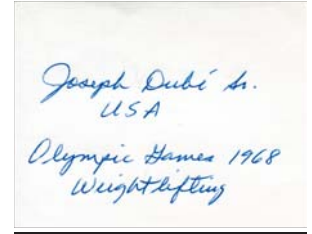 Joseph Dubé Sr.
USA
Olympic Games 1968
Weightlifting